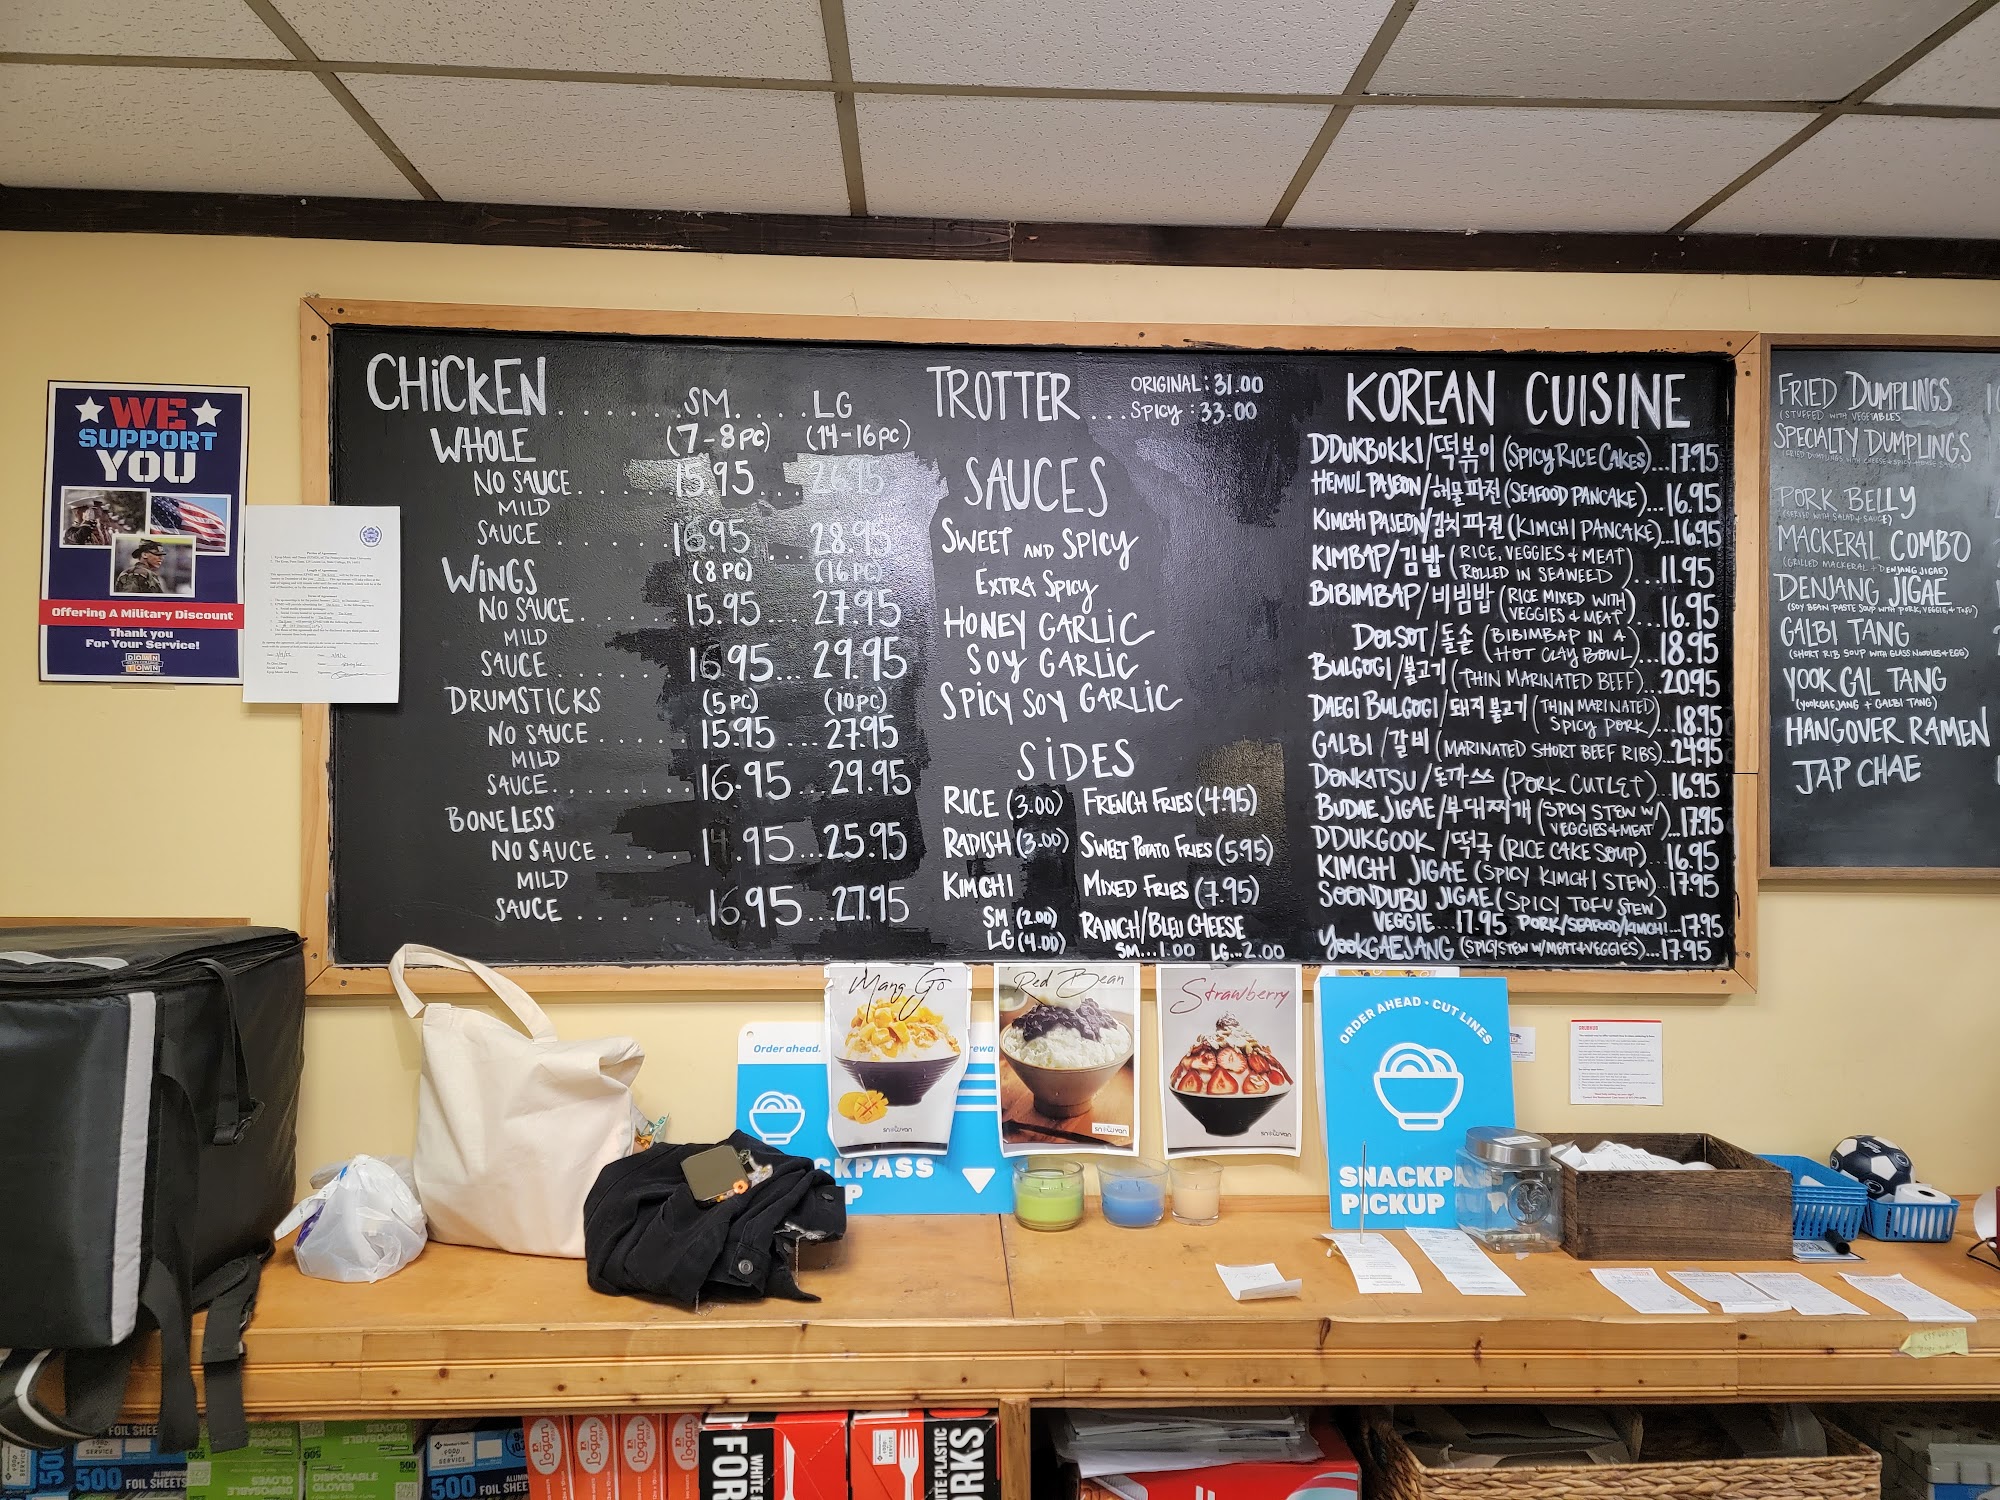 WE
SUPPORT
YOU
Offering A Military Discount
Thank you
For Your Service!
DOWN
TOWN
CHICKEN.......SM.....LG
WHOLE (7-8PC) (14-16PC)
NO SAUCE......15.95 26.95
MILD
SAUCE......16.95...28.95
WINGS (8 PC) (16 PC)
NO SAUCE......15.95...27.95
MILD
SAUCE......16.95...29.95
DRUMSTICKS (5 PC) (10 PC)
NO SAUCE......15.95...27.95
MILD
SAUCE.........16.95...29.95
BONELESS
NO SAUCE......14.95...25.95
MILD
SAUCE........16.95...27.95
TROTTER... ORIGINAL: 31.00
SPICY: 33.00
SAUCES
SWEET AND SPICY
EXTRA SPICY
HONEY GARLIC
SOY GARLIC
SPICY SOY GARLIC
SIDES
RICE (3.00) FRENCH FRIES (4.95)
RADISH (3.00) SWEET POTATO FRIES (5.95)
KIMCHI MIXED FRIES (7.95)
SM (2.00) RANCH/BLEU CHEESE
LG (4.00) SM...1.00 LG...2.00
KOREAN CUISINE
DDUKBOKKI/떡볶이 (SPICY RICE CAKES)...17.95
HEMUL PAJEON/해물파전 (SEAFOOD PANCAKE)...16.95
KIMCHI PAJEON/김치파전 (KIMCHI PANCAKE)...16.95
KIMBAP/김밥 (RICE, VEGGIES + MEAT
ROLLED IN SEAWEED)...11.95
BIBIMBAP/비빔밥 (RICE MIXED WITH
VEGGIES & MEAT)...16.95
DOLSOT/돌솥 (BIBIMBAP IN A
HOT CLAY BOWL)...18.95
BULGOGI/불고기 (THIN MARINATED BEEF)...20.95
DAEGI BULGOGI/돼지불고기 (THIN MARINATED
SPICY PORK)...18.95
GALBI/갈비 (MARINATED SHORT BEEF RIBS)...24.95
DONKATSU/돈까쓰 (PORK CUTLET)...16.95
BUDAE JIGAE/부대찌개 (SPICY STEW W/
VEGGIES+MEAT)...17.95
DDUKGOOK/떡국 (RICE CAKE SOUP)...16.95
KIMCHI JIGAE (SPICY KIMCHI STEW)...17.95
SOONDUBU JIGAE (SPICY TOFU STEW)
VEGGIE...17.95 PORK/SEAFOOD/KIMCHI...17.95
YOOKGAEJANG (SPICY STEW W/ MEAT+VEGGIES)...17.95
FRIED DUMPLINGS
(STUFFED WITH VEGETABLES
SPECIALTY DUMPLINGS
PORK BELLY
(SERVED WITH SALAD + SAUCE)
MACKERAL COMBO
(GRILLED MACKERAL + DENJANG JIGAE)
DENJANG JIGAE
(SOY BEAN PASTE SOUP WITH PORK, VEGGIE, & TOFU)
GALBI TANG
(SHORT RIB SOUP WITH GLASS NOODLES & EGG)
YOOK GAL TANG
(YOOKGAEJANG + GALBI TANG)
HANGOVER RAMEN
JAP CHAE
Order ahead.
CKPASS
Mang Go
snowvan
Red Bean
snowvan
Strawberry
snowvan
ORDER AHEAD · CUT LINES
SNACKPA
PICKUP
FOIL SHEETS
500 ALUMINUM FOIL SHEETS
DISPOSABLE GLOVES
500
DISPOSABLE
GLOVES
500
500 FOIL SHEE
logan
logan
logan
logan
WHITE
FOR
PLASTIC
RKS